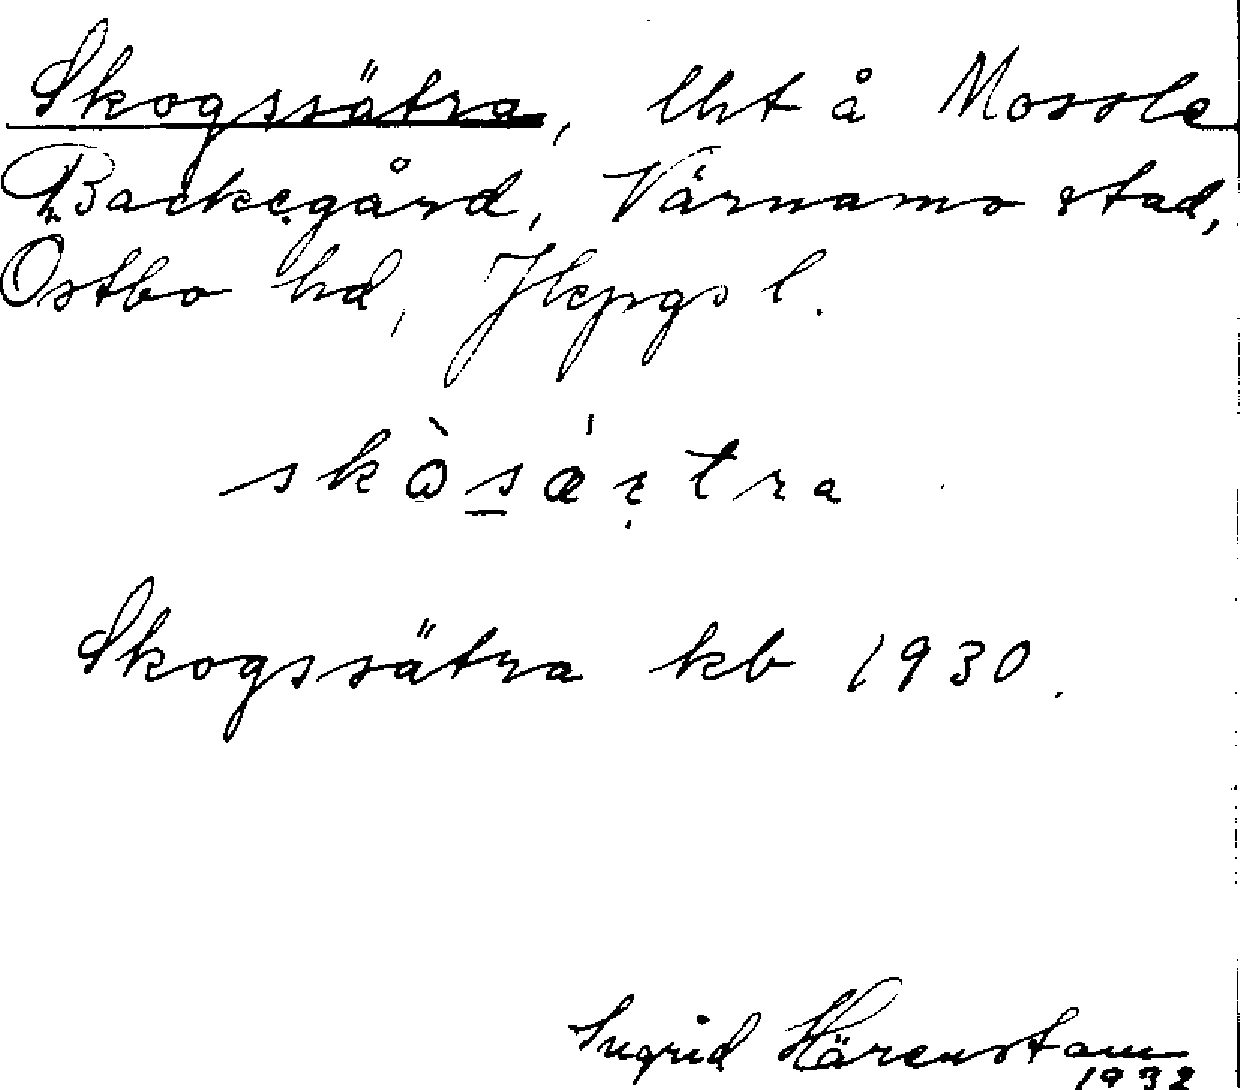 Skogssätra, lht å Mossle
Backegård, Värnamo stad,
Östbo hd, Jkpgs l.
Skogssätra kb 1930.
Ingrid Härenstam
1932